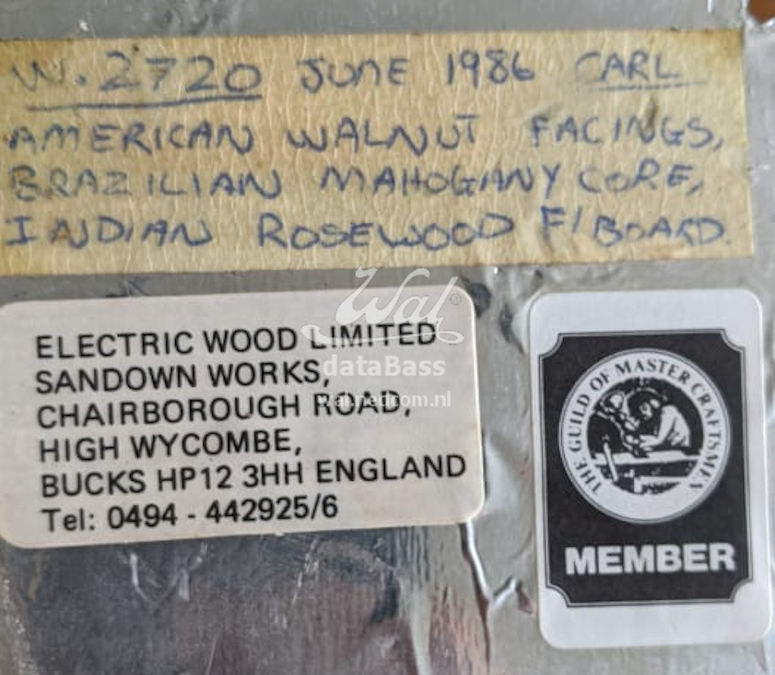 W.2720 JUNE 1986 CARL
AMERICAN WALNUT FACINGS,
BRAZILIAN MAHOGANY CORE,
INDIAN ROSEWOOD F/BOARD.
Wal®
dataBass
wal.nedcom.nl
ELECTRIC WOOD LIMITED
SANDOWN WORKS,
CHAIRBOROUGH ROAD,
HIGH WYCOMBE,
BUCKS HP12 3HH ENGLAND
Tel: 0494 - 442925/6
THE GUILD OF MASTER CRAFTSMEN
MEMBER